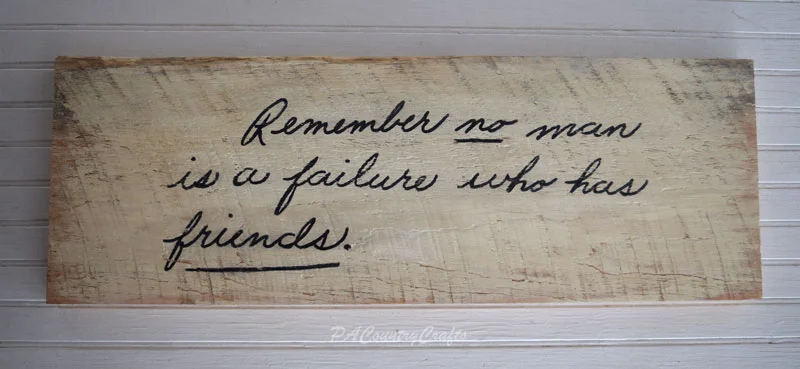 Remember no man
is a failure who has
friends.
PACountryCrafts